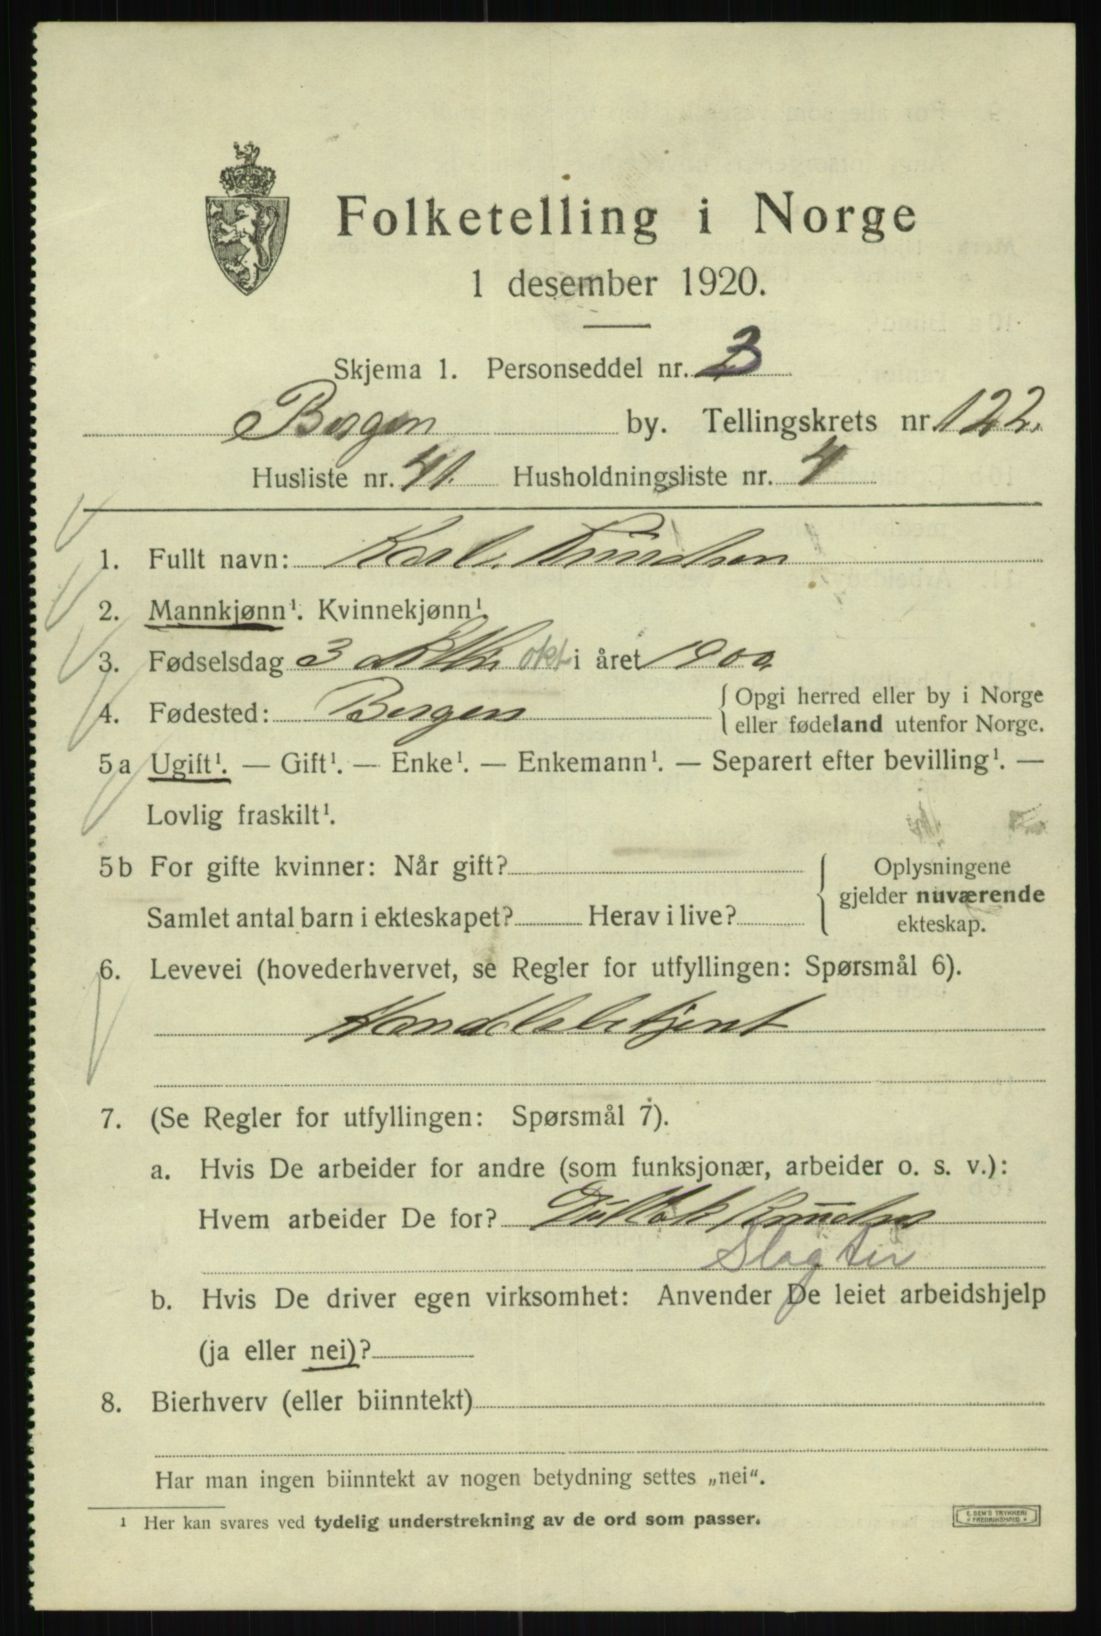 Folketelling i Norge
1 desember 1920.
Skjema 1. Personseddel nr. 3
Bergen by. Tellingskrets nr. 122.
Husliste nr. 41. Husholdningsliste nr. 4
1. Fullt navn: Karl Knudsen
2. Mannkjønn¹. Kvinnekjønn¹.
3. Fødselsdag 3 okt i året 1900
4. Fødested: Bergen { Opgi herred eller by i Norge
eller fødeland utenfor Norge.
5a Ugift¹. — Gift¹. — Enke¹. — Enkemann¹. — Separert efter bevilling¹. —
Lovlig fraskilt¹.
5b For gifte kvinner: Når gift?
Samlet antal barn i ekteskapet? Herav i live?
{ Oplysningene
gjelder nuværende
ekteskap.
6. Levevei (hovederhvervet, se Regler for utfyllingen: Spørsmål 6).
Handelsbetjent
7. (Se Regler for utfyllingen: Spørsmål 7).
a. Hvis De arbeider for andre (som funksjonær, arbeider o. s. v.):
Hvem arbeider De for? Knudsen
Slagter
b. Hvis De driver egen virksomhet: Anvender De leiet arbeidshjelp
(ja eller nei)?
8. Bierhverv (eller biinntekt)
Har man ingen biinntekt av nogen betydning settes „nei“.
¹ Her kan svares ved tydelig understrekning av de ord som passer.
E. SEM'S TRYKKERI
FREDRIKSHALD